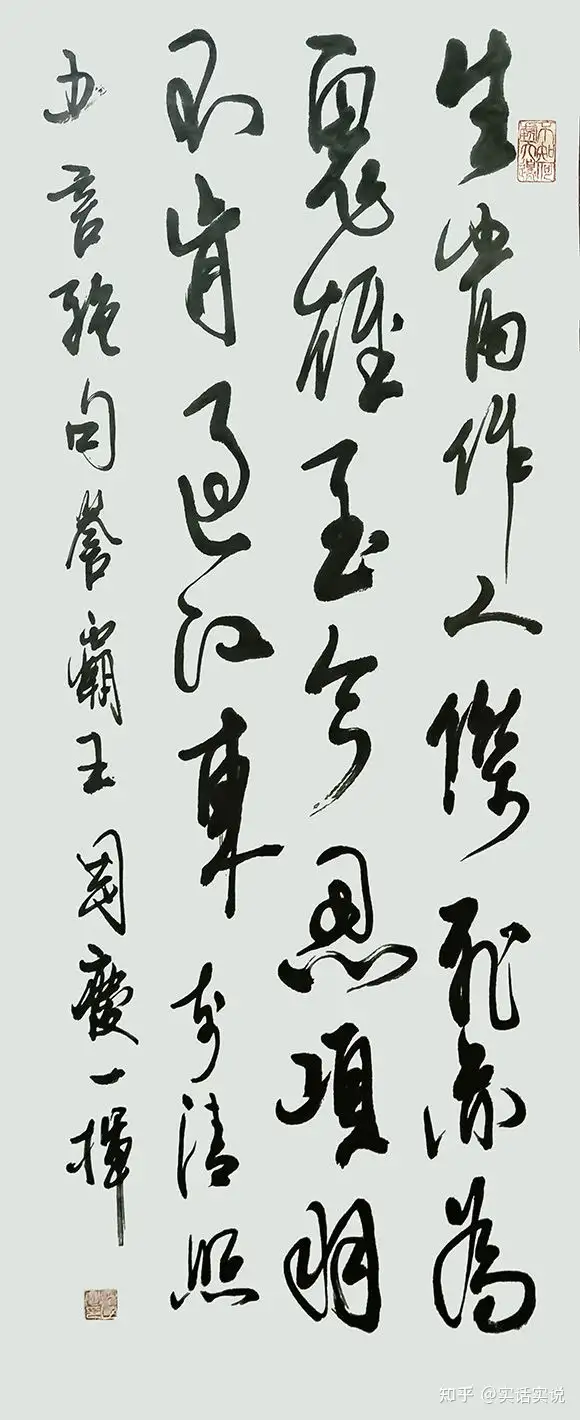 生當作人傑死亦為
鬼雄至今思項羽
不肯過江東 李清照
五言絕句譽霸王 國慶一揮
知乎 @实话实说